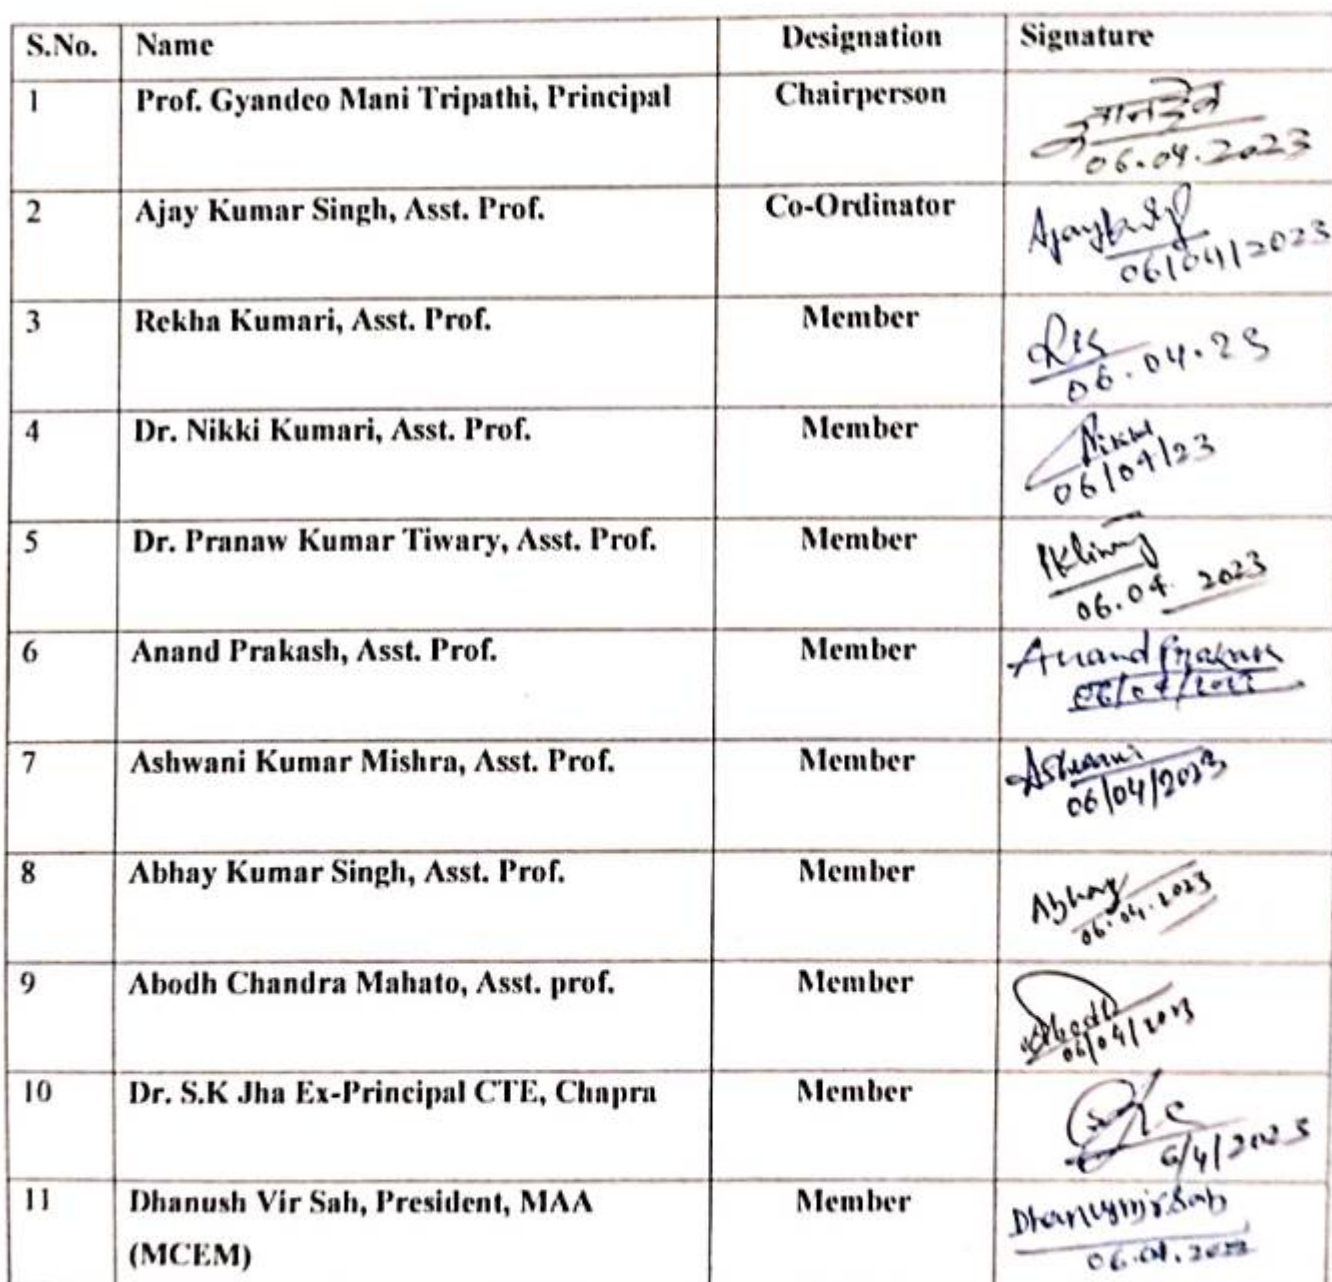 S.No. Name Designation Signature
1 Prof. Gyandeo Mani Tripathi, Principal Chairperson ज्ञानदेव
06.04.2023
2 Ajay Kumar Singh, Asst. Prof. Co-Ordinator
06/04/2023
3 Rekha Kumari, Asst. Prof. Member
06.04.23
4 Dr. Nikki Kumari, Asst. Prof. Member Nikki
06/04/23
5 Dr. Pranaw Kumar Tiwary, Asst. Prof. Member
06.04.2023
6 Anand Prakash, Asst. Prof. Member Anand Prakash
7 Ashwani Kumar Mishra, Asst. Prof. Member Ashwani
06/04/2023
8 Abhay Kumar Singh, Asst. Prof. Member Abhay
06.04.2023
9 Abodh Chandra Mahato, Asst. prof. Member Abodh
06/04/2023
10 Dr. S.K Jha Ex-Principal CTE, Chapra Member
6/4/2023
11 Dhanush Vir Sah, President, MAA Member
(MCEM) 06.04.2023